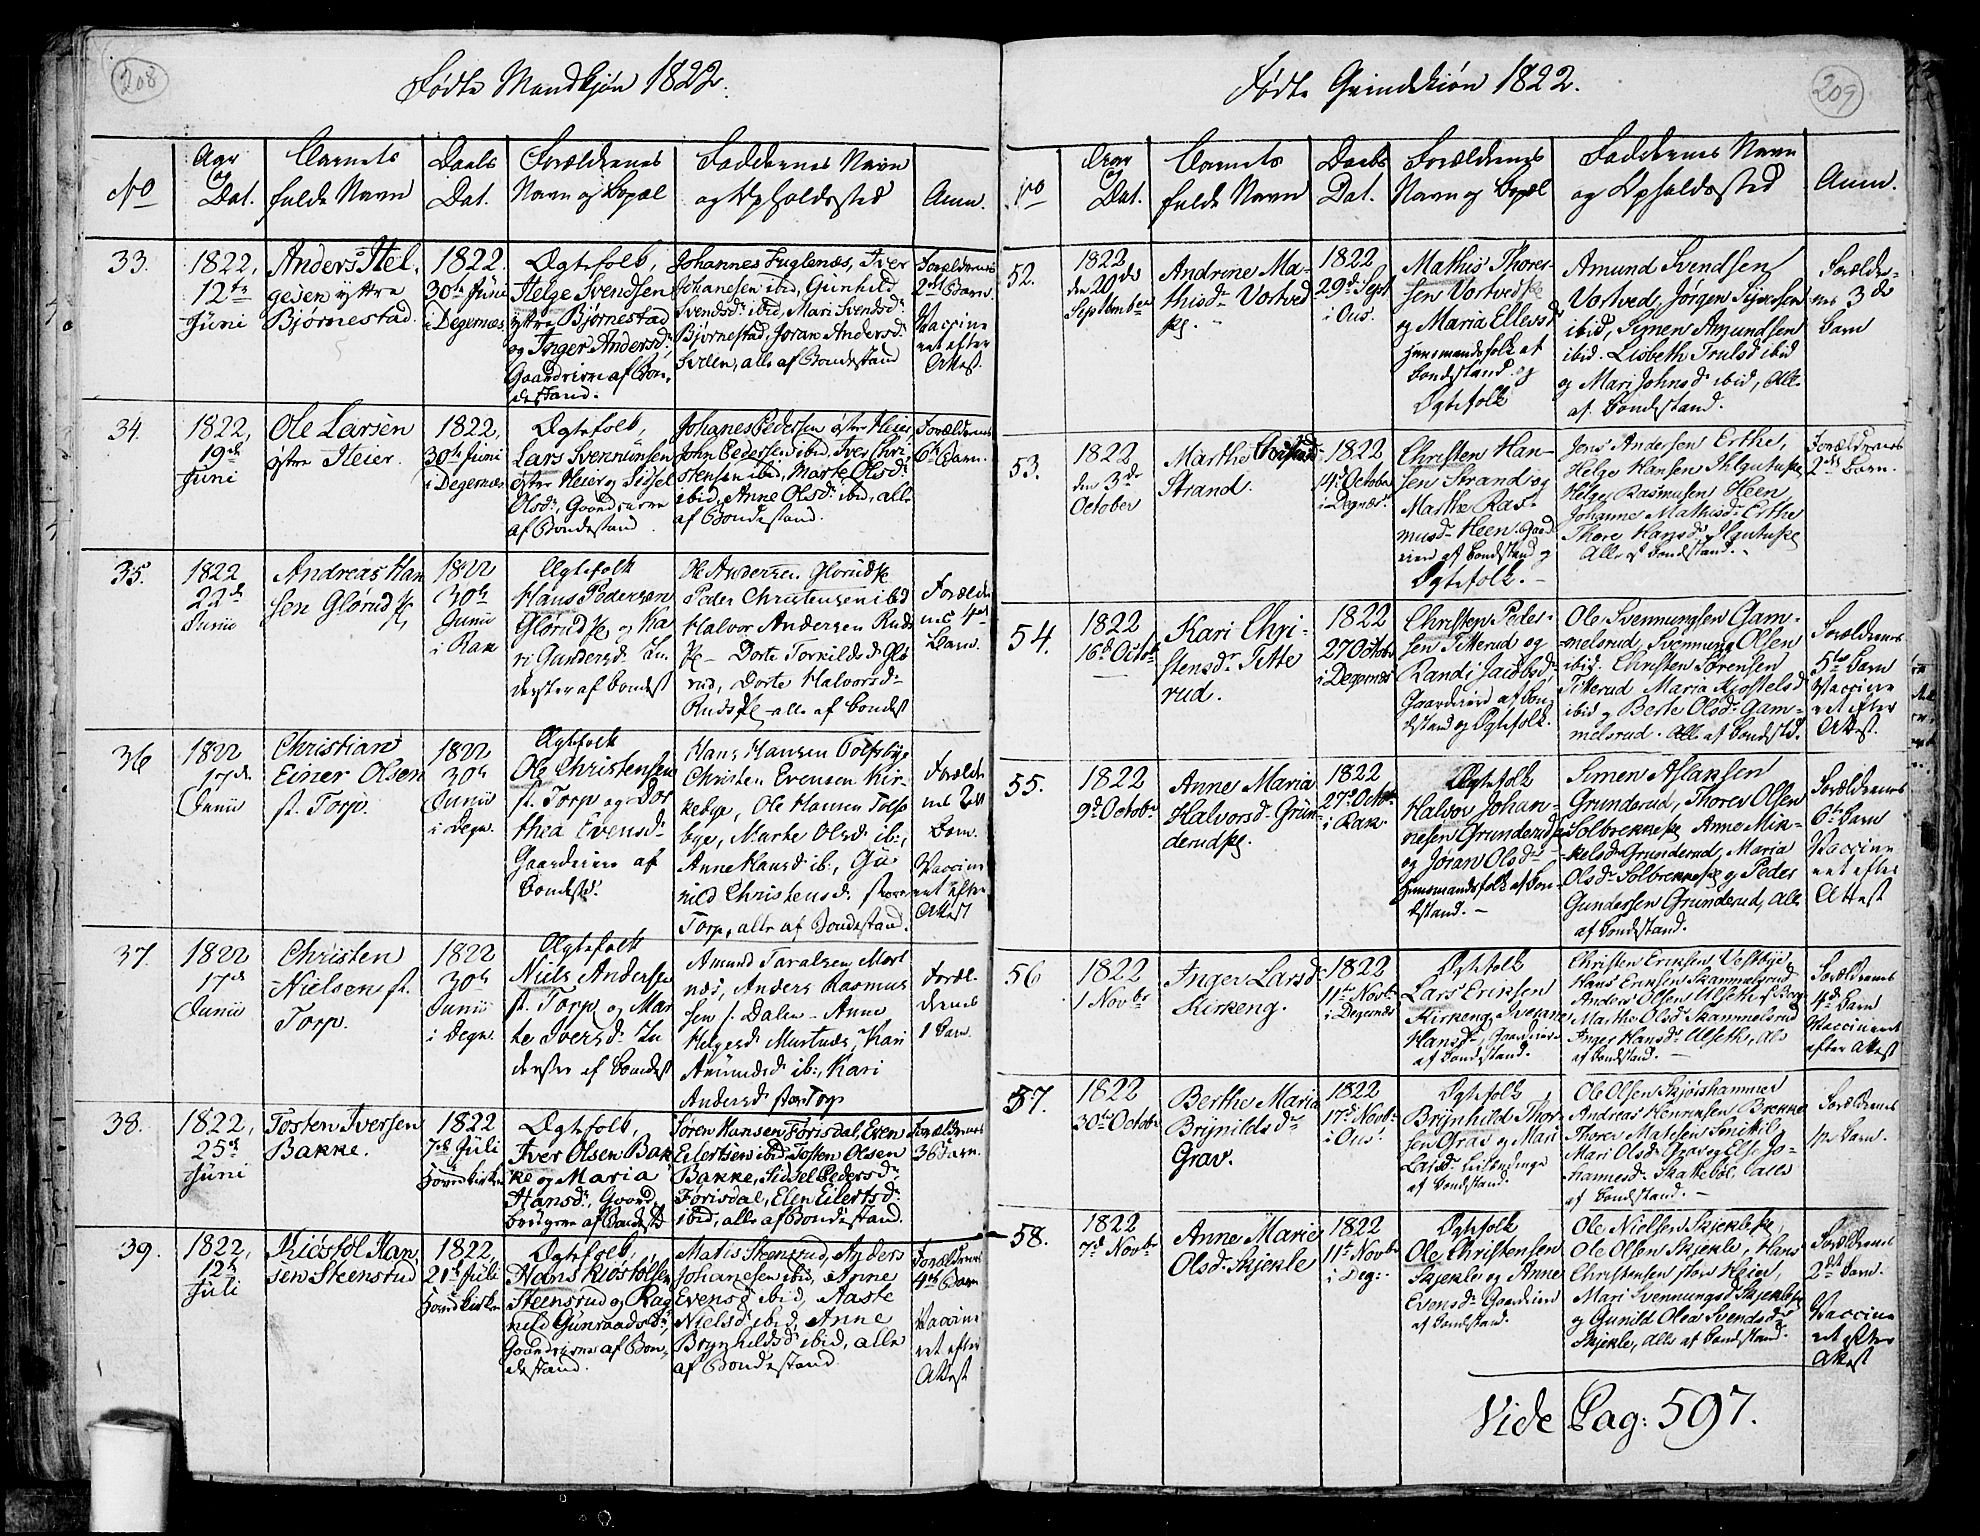 208
Fødte Mandkjøn 1822.
No
Aar og Dat.
Barnets fulde Navn
Daabs Dat.
Forældrenes Navn og Bopæl
Faddernes Navn og Opholdssted
Anm.
33.
1822,
12te
Juni
Anders Hel-
gesen yttre
Bjørnestad.
1822.
30te Juni
i Degernæs
Ægtefolk,
Helge Svendsen
yttre Bjørnestad
og Inger Andersdr
Gaardeiere af Bon-
destand.
Johannes Fuglenæs, Iver
Johanesen ibid, Gunhild
Svendsdr ibid, Mari Svendsdr
Bjørnestad, Joran Andersdr
alle af Bondestand
Forældrenes
2det Barn.
Vaccine
ret efter
Attest.
34.
1822,
19de
Juni
Ole Larsen
østre Heier.
1822,
30te Juni
i Degernæs
Ægtefolk,
Lars Svennunsen
østre Heier og Sissel
Olsdr, Gaardeiere
af Bondestand
Johanes Pedersen østre Heier
John Pedersen ibid, Iver Chri-
stensen ibid, Marte Olsdr
ibid, Anne Olsdr ibid, alle
af Bondestand.
Forældrenes
6te Barn.
35.
1822
22de
Junii
Andreas Han
sen Glørud
1822
30te
Junii
i Rak
Ægtefolk
Hans Pedersen
Glørud og Ka
ri Gundersdr In-
derster af bondest
Ole Andersen Glorud
Peder Christensen ibid
Halvor Andersen Ruds
Dorte Torkildsdr Glo
rud, Dorte Halvorsdr
Ruds alle af bondest
Forældre
nes 4de
Barn.
36
1822
17de
Junii
Christian
Einer Olsen
st. Torp.
1822
30te
Junii
i Degn.
Ægtefolk
Ole Christensen
st. Torp og Dor
thea Evensdr
Gaardeiere af
bondest.
Hans Hansen Tolfsbye
Christen Evensen Kir-
kebye, Ole Hansen Tolfs
bye, Marte Olsdr ib:,
Anne Hansdr ib:, Gu
nild Christensdr store
Torp, alle af Bondestand.
Foræld
nes 2det
Barn
Vaccine
ret efter
Attest
37
1822
17de
Junii
Christen
Nielsen st.
Torp.
1822
30te
Junii
i Degn.
Ægtefolk
Niels Andersen
st. Torp og Mar
te Iversdr In
derster af bondest
Amund Taralsen Mort
næs, Anders Rasmus
sen s. Dalen - Anne
Helgesdr Mortnæs, Kari
Amundsdr ib:, Kari
Andersdr store Torp
Foræl-
drenes
1 Barn.
38.
1822,
25de
Juni
Tosten Iversen
Bakke.
1822
7de Juli
Hovedkirken
Ægtefolk,
Iver Olsen Bak
ke og Maria
Hansdr, Gaard
brugere af Bondestd
Søren Hansen Forisdal, Even
Eilertsen ibid, Tosten Olsen
Bakke, Sidsel Pedersdr
Forisdal, Elen Eilertsdr
ibid, alle af Bondestand.
Forældrenes
3die Barn.
39.
1822,
12te
Juli
Kiøstol Han
sen Steensrud
1822,
21de Juli
Hovedkirken
Ægtefolk,
Hans Kiøstolsen
Steensrud og Rag
nild Gunvaadsdr,
Gaardeiere af Bon-
destand.
Matis Steensrud, Anders
Johanesen ibid, Anne
Evensdr ibid, Aaste
Nielsdr ibid, Anne
Brynhildsdr ibid, alle
af Bondestand
Forældrenes
4de Barn
Vaccine
ret efter
Attest
209
Fødte Qvindekiøn 1822.
No
Aar og Dat.
Barnets fulde Navn
Daabs Dat.
Forældrenes Navn og Bopæl
Faddernes Navn og Opholdssted
Anm.
52.
1822
den 20de
September
Andrine Ma-
thisdr Vortved
1822
29de Sept
i Ous.
Mathis Thores-
sen Vortved
og Maria Ellefsdr
Huusmandsfolk af
Bondestand og
Ægtefolk
Amund Svendsen
Vortved, Jørgen Syversen
ibid, Simen Amundsen
ibid. Lisbeth Trulsdr ibid
og Mari Johnsdr ibid, Alle
af Bondestand.
Forældre-
nes 3de
Barn
53.
1822
den 3de
October
Marthe
Strand.
1822
14de October
i Degnæs.
Christen Han-
sen Strand og
Marthe Ras-
musdr Heen. Gaard
eiere af Bondestand og
Ægtefolk. -
Jens Andersen Erthe,
Helge Hansen
Helge Rasmusen Heen
Johanne Mathisdr Erthe
Thore Hansdr
Alle af bondestand. -
Forældrenes
2det Barn.
54.
1822
16de Octobr
Kari Chri-
stensdr Titte
rud.
1822
27 October
i Degernæs
Christen Peder-
sen Titterud og
Randi Jacobsdr
Gaardeiere af bon
destand og Ægtefolk.
Ole Svennungsen Gam-
melsrud, Svennung Olsen
ibid. Christen Sørensen
Titterud Maria Kjøstelsdr
ibid og Berte Olsdr Gam-
melsrud. Alle af Bondestd.
Forældrenes
5te Barn
Vaccine
ret efter
Attest.
55.
1822
9de Octobr
Anne Maria
Halvorsdr Grun-
derud.
1822,
27de Octobr
i Rak
Ægtefolk
Halvor Johan-
nesen Grunderud
og Jøran Olsdr
Huusmandsfolk af Bon-
destand. -
Simen Aslaksen
Grunderud, Thorer Olsen
Solbrekke Anne Mik-
kelsdr Grunderud, Maria
Olsdr Solbrekke og Peder
Gundersen Grunderud, Alle
af Bondestand.
Forældrenes
6te Barn
Vaccine
ret efter
Attest
56
1822
1 Novbr
Inger Larsdr
Kirkeng.
1822
11te Novbr
i Degernæs
Ægtefolk
Lars Eriksen
Kirkeng,
Hansdr, Gaardeiere
af Bondestand.
Christen Eriksen Vestbye,
Hans Eriksen Skammelsrud
Anders Olsen Ulseth
Marthe Olsdr Skammelsrud
Inger Hansdr Ulseth, Alle
af Bondestand. -
Forældrenes
4de Barn
Vaccineret
efter Attest
57.
1822
30te Octobr
Berthe Maria
Brynildsdr
Grav.
1822
17de Novbr
i Ous.
Ægtefolk
Brynhild Thor-
sen Grav og Mari
Larsdr
af Bondestand.
Ole Olsen Skjørshammer
Andreas Henriksen Brekke
Thorer Mathsen
Mari Olsdr Grav og Else Jo-
hannesdr Skakbøl, alle
af Bondestand. -
Forældrenes
Barn.
58.
1822
7de Novbr
Anne Marie
Olsdr Skjekle
1822
11te Novbr
i Deg:
Ægtefolk
Ole Christensen
Skjekle og Anne
Evensdr Gaardeiere
af Bondestand.
Ole Nielsen
Ole Olsen Skjekle, Hans
Christensen store Heier,
Mari Svennungsdr Skjekle
og Gunild Olea Svendsdr
Skjekle, Alle af Bondestand.
Forældrenes
2det Barn.
Vaccine
ret efter
Attest
Vide Pag: 597.